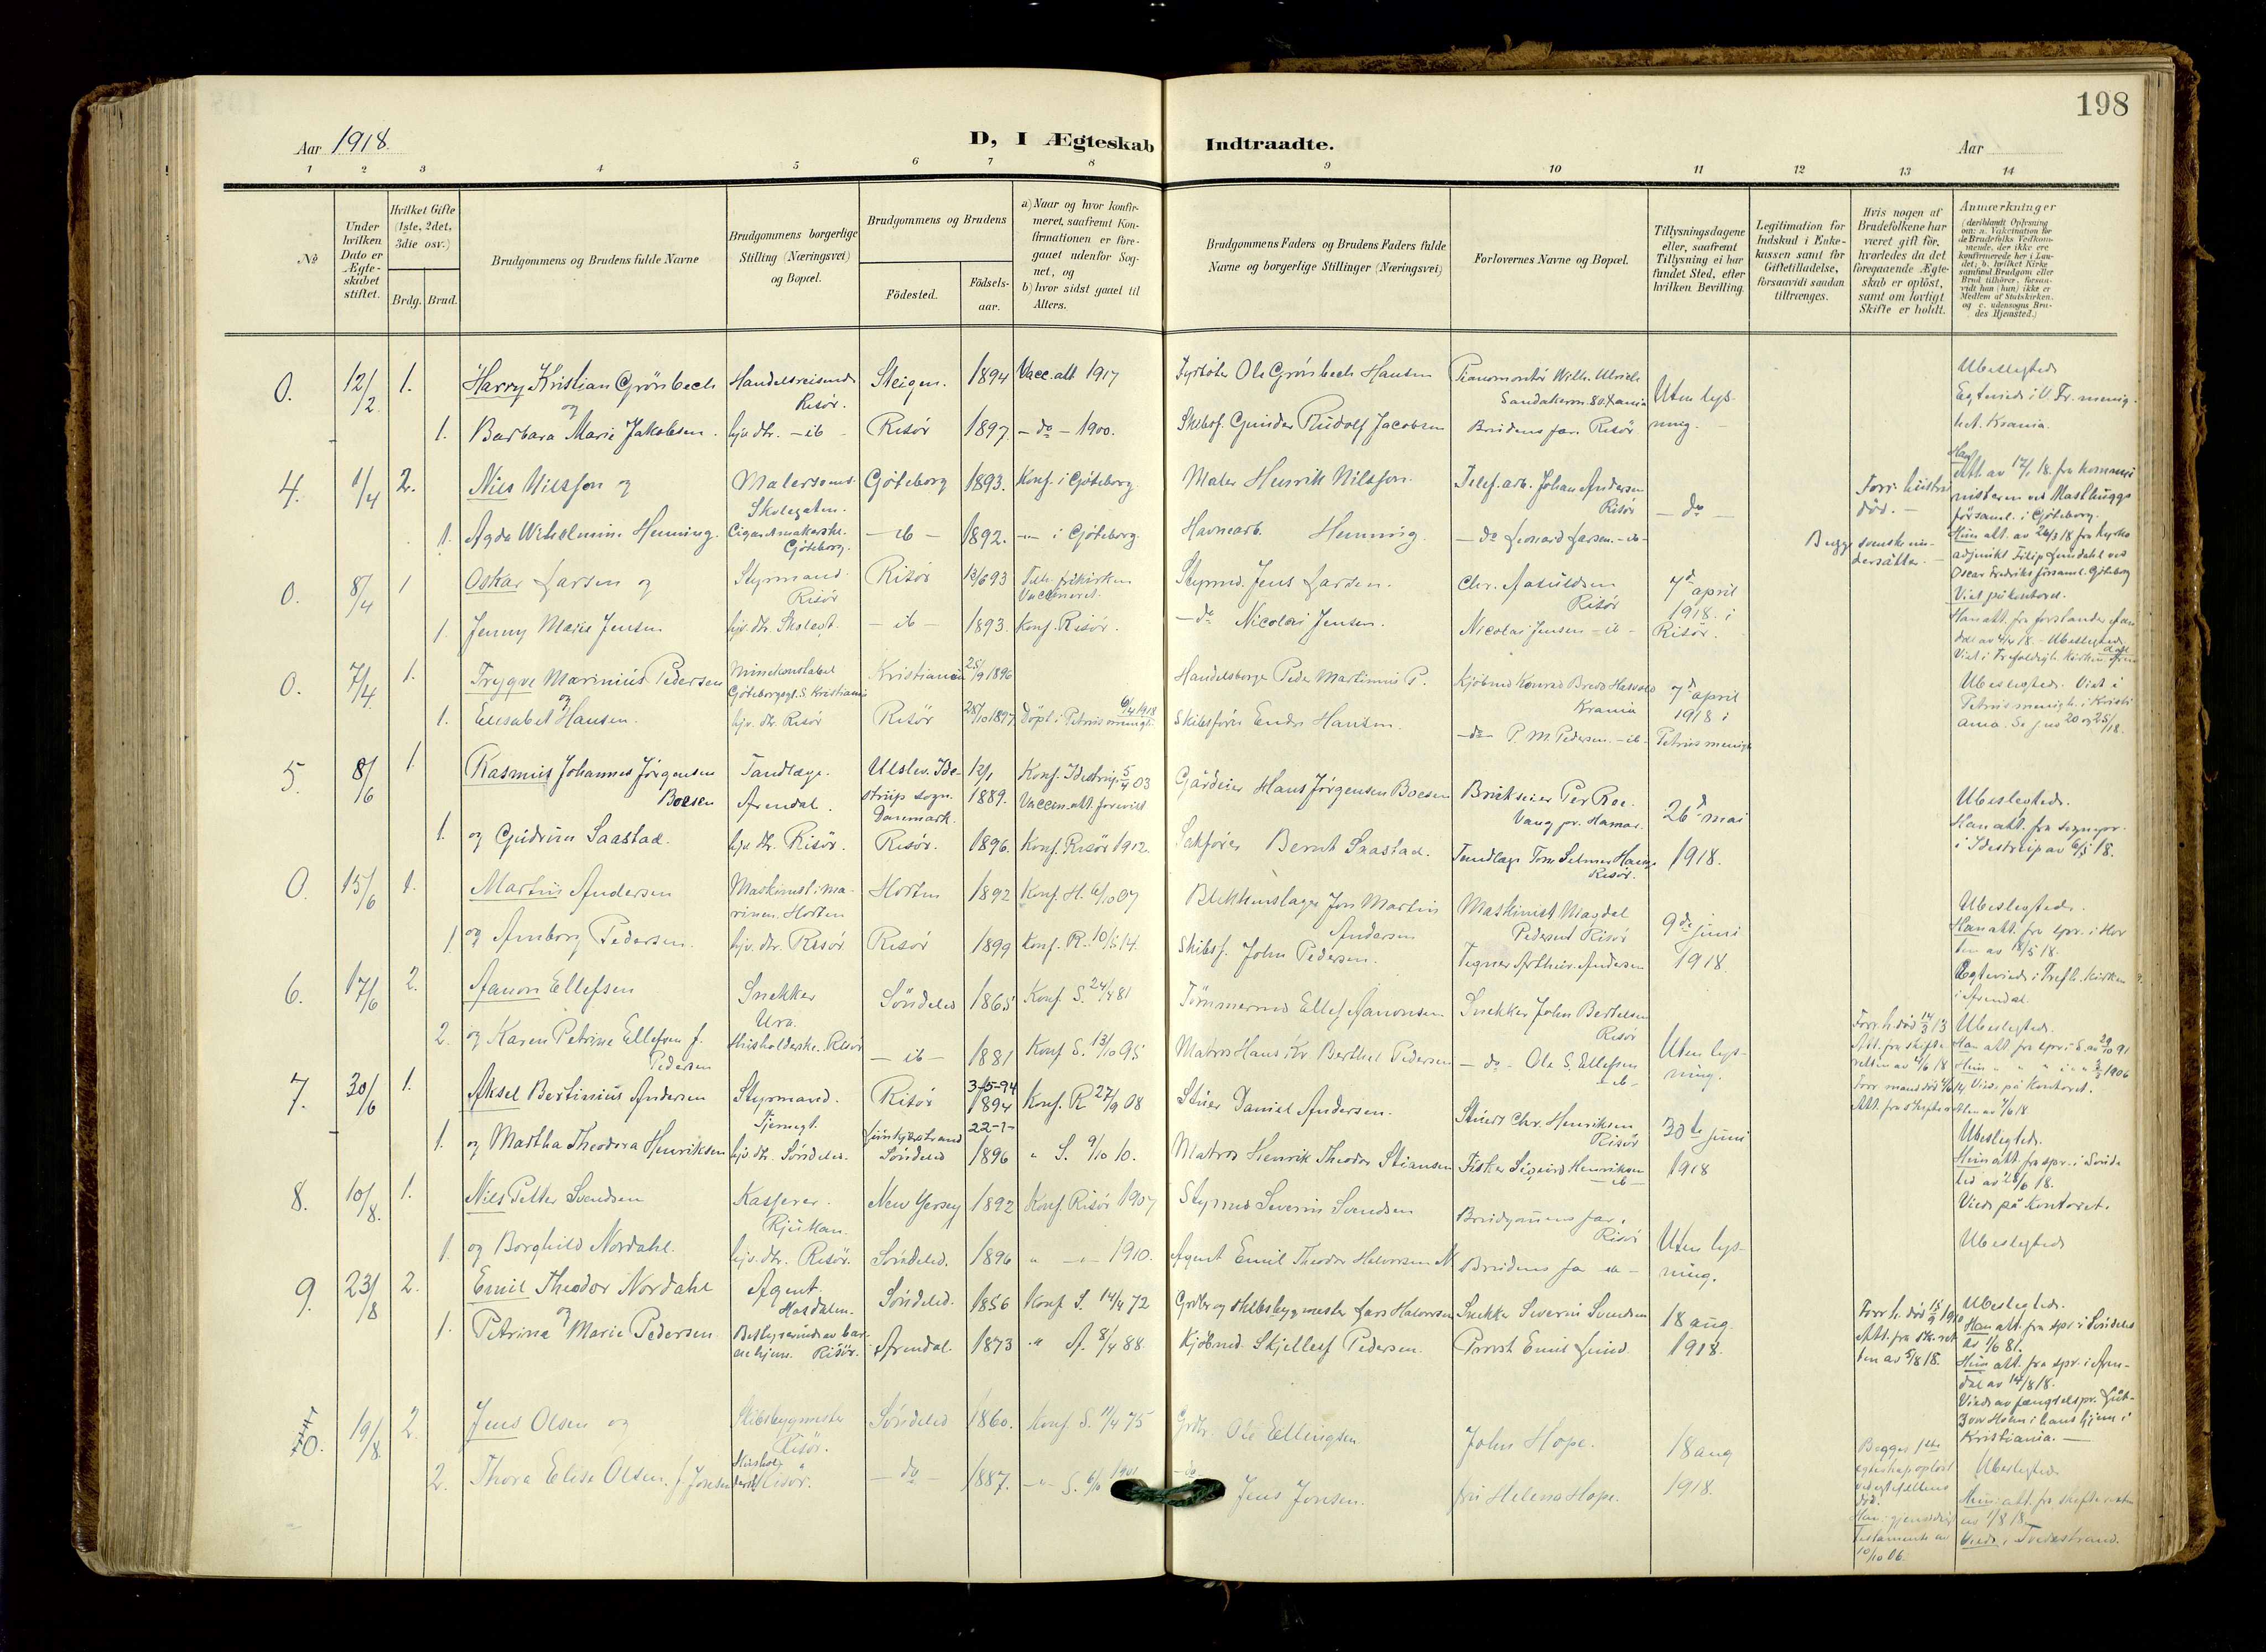 198
Aar 1918.
D, I Ægteskab Indtraadte.
Aar
1 2 3 4 5 6 7 8 9 10 11 12 13 14
No
Under hvilken Dato er Ægteskabet stiftet.
Hvilket Gifte (1ste, 2det, 3die osv.)
Brdg. Brud.
Brudgommens og Brudens fulde Navne
Brudgommens borgerlige Stilling (Næringsvei) og Bopæl.
Brudgommens og Brudens
Födested.
Födselsaar.
a) Naar og hvor konfirmeret, saafremt Konfirmationen er foregaaet udenfor Sognet, og
b) hvor sidst gaaet til Alters.
Brudgommens Faders og Brudens Faders fulde Navne og borgerlige Stillinger (Næringsvei)
Forlovernes Navne og Bopæl.
Tillysningsdagene eller, saafremt Tillysning ei har fundet Sted, efter hvilken Bevilling.
Legitimation for Indskud i Enkekassen samt for Giftetilladelse, forsaavidt saadan tiltrænges.
Hvis nogen af Brudefolkene har været gift för, hvorledes da det foregaaende Ægteskab er oplöst, samt om lovligt Skifte er holdt.
Anmærkninger
(deriblandt Oplysning om: a. Vakcination for de Brudefolks Vedkommende, der ikke ere konfirmerede her i Landet; b. hvilket Kirkesamfund Brudgom eller Brud tilhörer, forsaavidt han (hun) ikke er Medlem af Statskirken, og c. udensogns Brudes Hjemsted.)
0. 12/2. 1. Harry Kristian Grönbech Handelsreisende Risör. Steigen. 1894 Vacc. att 1917 Fyrböter Ole Grönbech Hansen Pianomontör Wilh. Ulrich Sandakerv. 80. Krania Uten lysning. Ubeslegtede Egteviede i V. Fr. menighet. Krania.
og
1. Barbara Marie Jakobsen. hjv. dtr. — ib — Risör 1897 — do — 1900. Skibsf. Gunder Rudolf Jacobsen Brudens far. Risör
4. 1/4 2. Nils Nilsson og Malersvend. Skolegaten. Göteborg 1893. Konf. i Göteborg Maler Henrik Nilsson. Telef. arb. Johan Andersen Risör — do — Forr. hustru död. — Han att. av 12/1 18. fra komministeren ved Masthuggs församl. i Göteborg.
1. Agda Wilhelmine Henning. Cigarmakerske. Göteborg. — ib — 1892. — i Göteborg Havnearb. Henning. — do Leonard Larsen. — ib — Begge svenske undersåtter. — Hun att. av 26/3 18 fra kyrkoadjunkt Filip Lundahl ved Oscar Fredriks församl. Göteborg Viet på kontoret.
0. 8/4 1 Oskar Larsen og Styrmand. Risör Risör 13/6 93 Tilh. frikirken Vaccineret. Styrmd. Jens Larsen. Chr. Aasuldsen Risör 7d april 1918. i Risör.
1. Jenny Marie Jensen hjv. dtr. Skolegt. — ib — 1893. Konf. Risör. — do Nicolai Jensen. Nicolai Jensen — ib — Han att. fra forstander Aandal av 4/4 18. — Ubeslegtede Viet i Trefoldigh. kirken
0. 7/4 1. Trygve Marinius Pedersen Minekonstabel Göteborggt. 8. Kristiania Kristiania 25/9 1896 Handelsborger Peder Martinius P. Kjöbmd Konrad Bredo Hasvold Krania 7d april 1918 i Petrus menigh Ubeslegtede. Viet i Petrus menigh. i Kristiania. Se jno 20 og 25/18.
og
1. Elisabet Hansen. hjv. dtr. Risör Risör 28/10 1897 Döpt i Petrus menigh. 6/4 1918 Skibsförer Endre Hansen — do — P. M. Pedersen. — ib —
5. 8/6 1 Rasmus Johannes Jörgensen Boesen Tandlæge. Arendal. Ulslev. Idestrup sogn. Danmark. 12/1 1889. Konf. Idestrup 5/4 03 Vaccin. att. forevist Gårdeier Hans Jörgensen Boesen Brukseier Per Roe. Vang pr. Hamar. 26d mai 1918. Ubeslegtede. Han att. fra sognepr. i Idestrup av 6/5 18.
1. og Gudrun Saastad. hjv. dtr. Risör. Risör. 1896. Konf. Risör 1912. Sakförer Bernt Saastad. Tandlæge Tom Selmer Hauge Risör.
0. 15/6 1. Martin Andersen Maskinist i marinen. Horten Horten 1892 Konf. H. 6/10 07 Blikkenslager Jon Martin Andersen Maskinist Magdal Pedersen Risör 9de juni 1918. Ubeslegtede. Han att. fra spr. i Horten av 18/5 18.
1 og Arnborg Pedersen. hjv. dtr. Risör. Risör 1899 Konf. R. 10/5 14. Skibsf. John Pedersen. Tegner Arthur Andersen Egteviede i Trefh. kirken i Arendal.
6. 17/6 2. Aanon Ellefsen Snekker Ura. Söndeled 1865 Konf. S. 24/4 81 Tömmermd Ellef Aanonsen Snekker John Bertelsen Risör Uten lysning. Forr. h. död 14/3 13 Att. fra skifteretten av 4/6 18 Ubeslegtede. Han att. fra spr. i S. av 29/10 91
2. og Karen Petrine Ellefsen f. Pedersen Husholderske. Risör — ib — 1881 Konf S. 13/10 95 Matros Hans Kr Berthel Pedersen — do — Ole S. Ellefsen — ib — Viede på Kontoret.
7. 30/6 1. Aksel Bertinius Andersen Styrmand. Tjernegt. Risör 3-5-94 1894 Konf. R 27/9 08 Stuer Daniel Andersen. Stuert Chr. Henriksen Risör 30te juni 1918 Ubeslegtede. Hun att. fra spr. i Söndeled av 28/6 18. Viede på Kontoret.
1. og Martha Theodora Henriksen hjv. dtr. Söndeled. Söndeled 22-1- 1896 " S. 9/10 10. Matros Henrik Theodor Stiansen Fisker Sigurd Henriksen — ib —
8. 10/8. 1. Nils Petter Svendsen Kasserer. Rjukan. New Yersey 1892 Konf. Risör 1907 Styrmd Severin Svendsen Brudgommens far. Risör Uten lysning. Ubeslegtede
1. og Borghild Nordahl. hjv. dtr. Risör. Söndeled. 1896 " — " — 1910. Agent Emil Theodor Halvorsen N Brudens far — ib —
9. 23/8 2. Emil Theodor Nordahl Agent. Hasdalen. Söndeled. 1856 Konf S. 14/4 72 Grdbr og skibsbygmester Lars Halvorsen Snekker Severin Svendsen 18 aug. 1918. Forr. h. död 15/9 1910 Att. fra skiferetten av 5/8 18. Ubeslegtede. Han att. fra spr. i Söndeled av 1/6 81.
og
1. Petrina Marie Pedersen Bestyrerinde av barnehjem. Risör. Arendal. 1873 " A. 8/4 88. Kjöbmd. Skjellelf Pedersen. Provst Emil Lund. Hun att. fra spr. i Arendal av 14/8 18. Viede av fængselspr. Holm i hans hjem i Kristiania. —
10. 19/8. 2. Jens Olsen og Skibsbygmester Risör. Söndeled 1860. Konf. S. 11/4 75 Grdbr Ole Ellingsen. John Hope. 18 aug 1918. Begges 1ste egteskap oplöst ved egtefællens död. Han: gjensidig Testamente av 10/10 06. Ubeslegtede
2. Thora Elise Olsen f. Jonsen Husholderske Risör. — do — 1887. — " — S. 6/10 1901 — do — Jens Jonsen. fru Helena Hope. Hun: att. fra skifteretten av 1/8 18. Viede i Tvedestrand.